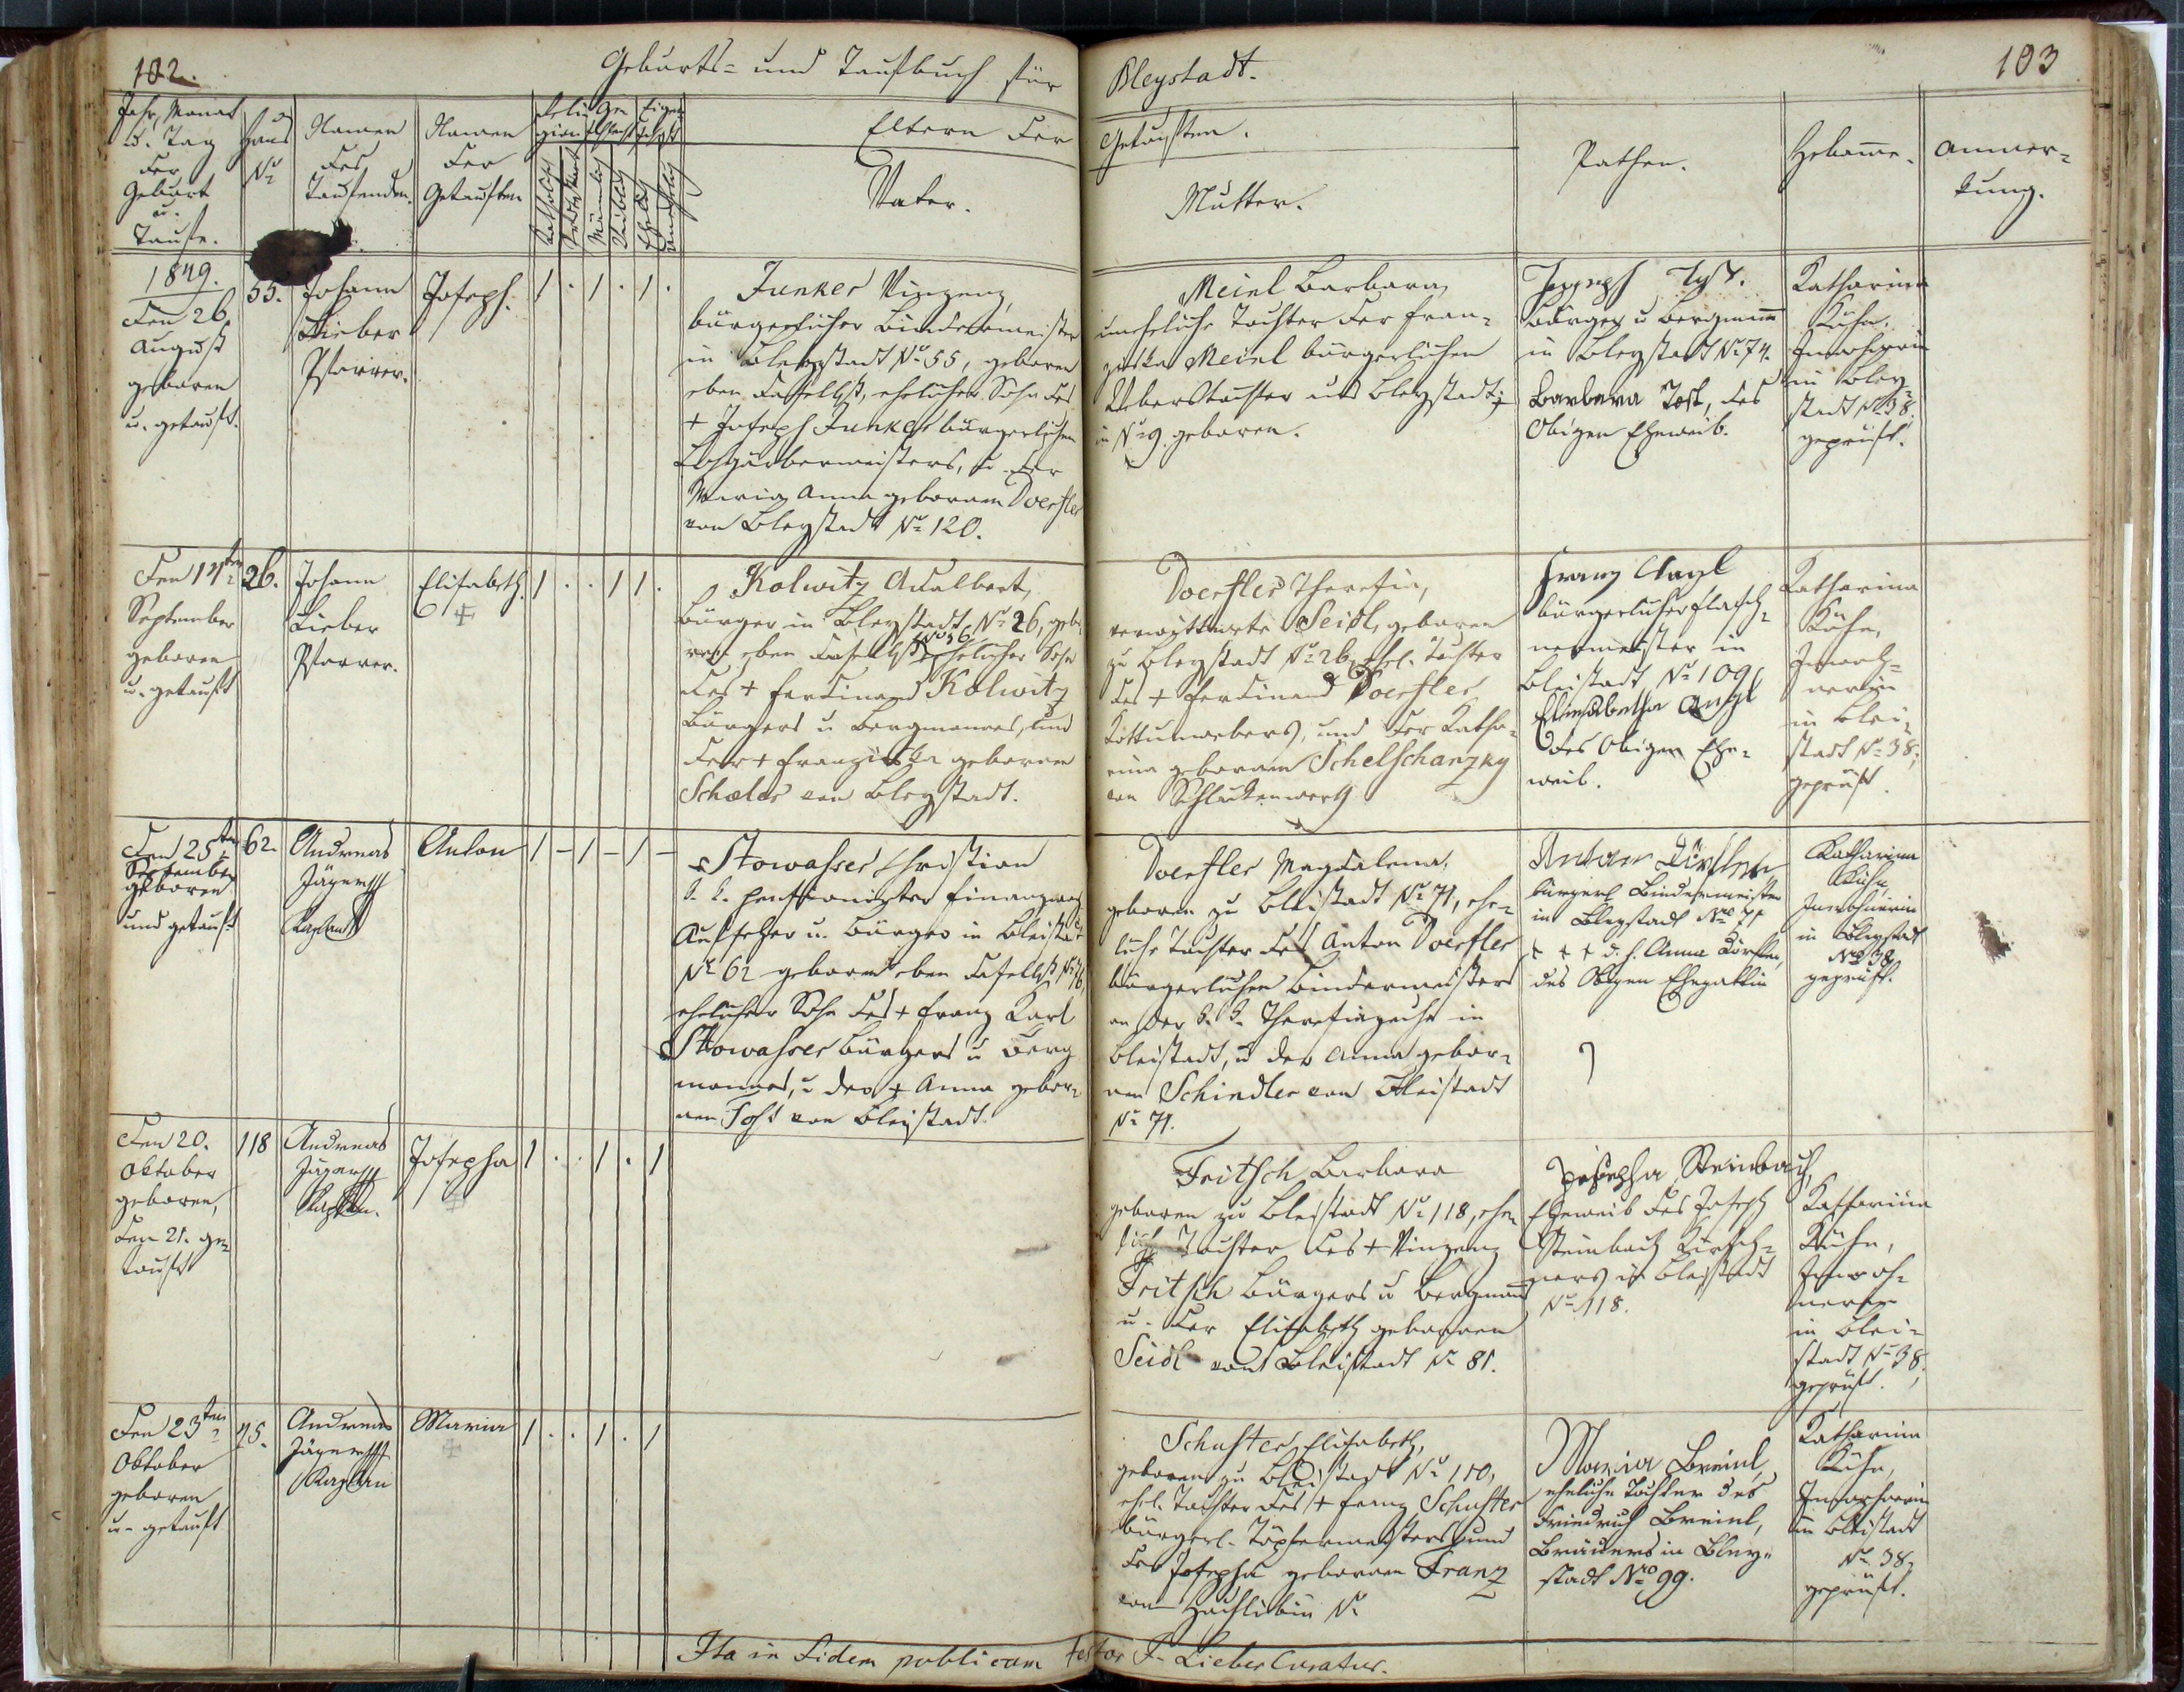 102.
Geburts- und Taufbuch für
Bleystadt.
103
Jahr, Monat
u. Tag
der
Geburt
u.
Taufe.
Haus
No
Namen
des
Taufenden.
Namen
der
Getauften
Religion
Katholisch
Protestant
Geschlecht
Männlich
Weiblich
Ehelich
Unehelich
Eltern der
Getauften.
Vater.
Mutter.
Pathen.
Hebame.
Anmer-
kung.
1849.
Den 26
August
geboren
u. getauft.
55.
Johann
Lieber
Pfarrer.
Joseph.
1 . 1 . 1 .
Junker Vinzenz,
bürgerlicher Bindermeister
in Bleystadt No 55, geboren
eben daselbst, ehelicher Sohn des
+ Joseph Junker bürgerlichen
Lohgärbermeisters, u. der
Maria Anna gebornen Doerfler
von Bleystadt No 120.
Meinl Barbara,
uneheliche Tochter der Fran-
ziska Meinl bürgerlichen
Weberstochter aus Bleystadt
in No 9. geboren.
Joseph
Bürger u Bergmann
in Bleystadt No 74.
Barbara Tost, des
Obigen Eheweib.
Katharina
Kühn,
Inwohnerin
in Bley-
stadt No 38,
geprüft.
Den 14ten
September
geboren
u. getauft
26.
Johann
Lieber
Pfarrer.
Elisabeth.
1 . . 1 1 .
Kolwitz Adalbert,
Bürger in Bleystadt No 26, gebo-
ren eben daselbst No 26 ehelicher Sohn
des + Ferdinand Kolwitz
Bürgers u Bergmannes, und
der + Franziska gebornen
Scheler von Bleystadt.
Doerfler Theresia,
verwittwete Seidl, geboren
zu Bleystadt No 26, ehel. Tochter
des + Ferdinand Doerfler
Kottunwebers, und der Katha-
rina gebornen Schelschanzky
von Schlackenwerth
Franz Angl
bürgerlicher Flasch-
nermeister in
Bleistadt No 109
Elisabetha Angl
des Obigen Ehe-
weib.
Katharina
Kühn,
Inwoh-
nerin
in Blei-
stadt No 38,
geprüft.
Den 25ten
September
geboren
und getauft
62.
Andreas
Jäger
Kaplan
Anton
1 – 1 – 1 –
Stowasser Christian
k. k. pensionirter Finanzwach
Aufseher u. Bürger in Bleistadt
No 62 geboren eben daselbst No 76,
ehelicher Sohn des + Franz Karl
Stowasser Bürgers u Berg
mannes, u der + Anna gebor-
nen Tost von Bleistadt.
Doerfler Magdalena,
geboren zu Bleistadt No 71, ehe-
liche Tochter des Anton Doerfler
bürgerlichen Bindermeisters
an der k. k. Theresiazeche in
Bleistadt, u der Anna gebor-
nen Schindler von Bleistadt
No 71.
Anton Dörfler,
bürgerl Bindermeister
in Bleystadt Nro 71
+ + + d. h. Anna Dörfler,
des Obigen Ehegattin
Katharina
Kühn,
Inwohnerin
in Bleystadt
Nro 38,
geprüft.
Den 20.
Oktober
geboren,
den 21. ge-
tauft
118
Andreas
Jäger
Kaplan.
Josepha
1 . . 1 . 1
Fritsch Barbara
geboren zu Bleistadt No 118, ehe-
lich Tochter des + Vinzenz
Fritsch Bürgers u Bergmann
u. der Elisabeth gebornen
Seidl von Bleistadt No 81.
Josepha Steinbach,
Eheweib des Joseph
Steinbach Kirsch-
ners in Bleistadt
No 118.
Katharina
Kühn,
Inwoh-
nerin
in Blei-
stadt No 38,
geprüft.
Den 23ten
Oktober
geboren
u. getauft
75.
Andreas
Jäger
Kaplan
Maria
1 . . 1 . 1
Schuster Elisabeth,
geboren zu Bleistadt No 110,
ehel. Tochter des + Franz Schuster
bürgerl. Töpfermeisters und
der Josepha gebornen Franz
von No
Maria Breinl,
eheliche Tochter des
Friedrich Breinl,
Bräuers in Bley-
stadt Nro 99.
Katharina
Kühn,
Inwohnerin
in Bleistadt
No 38,
geprüft.
Ita in fidem publicam testor J. Lieber Curatus.